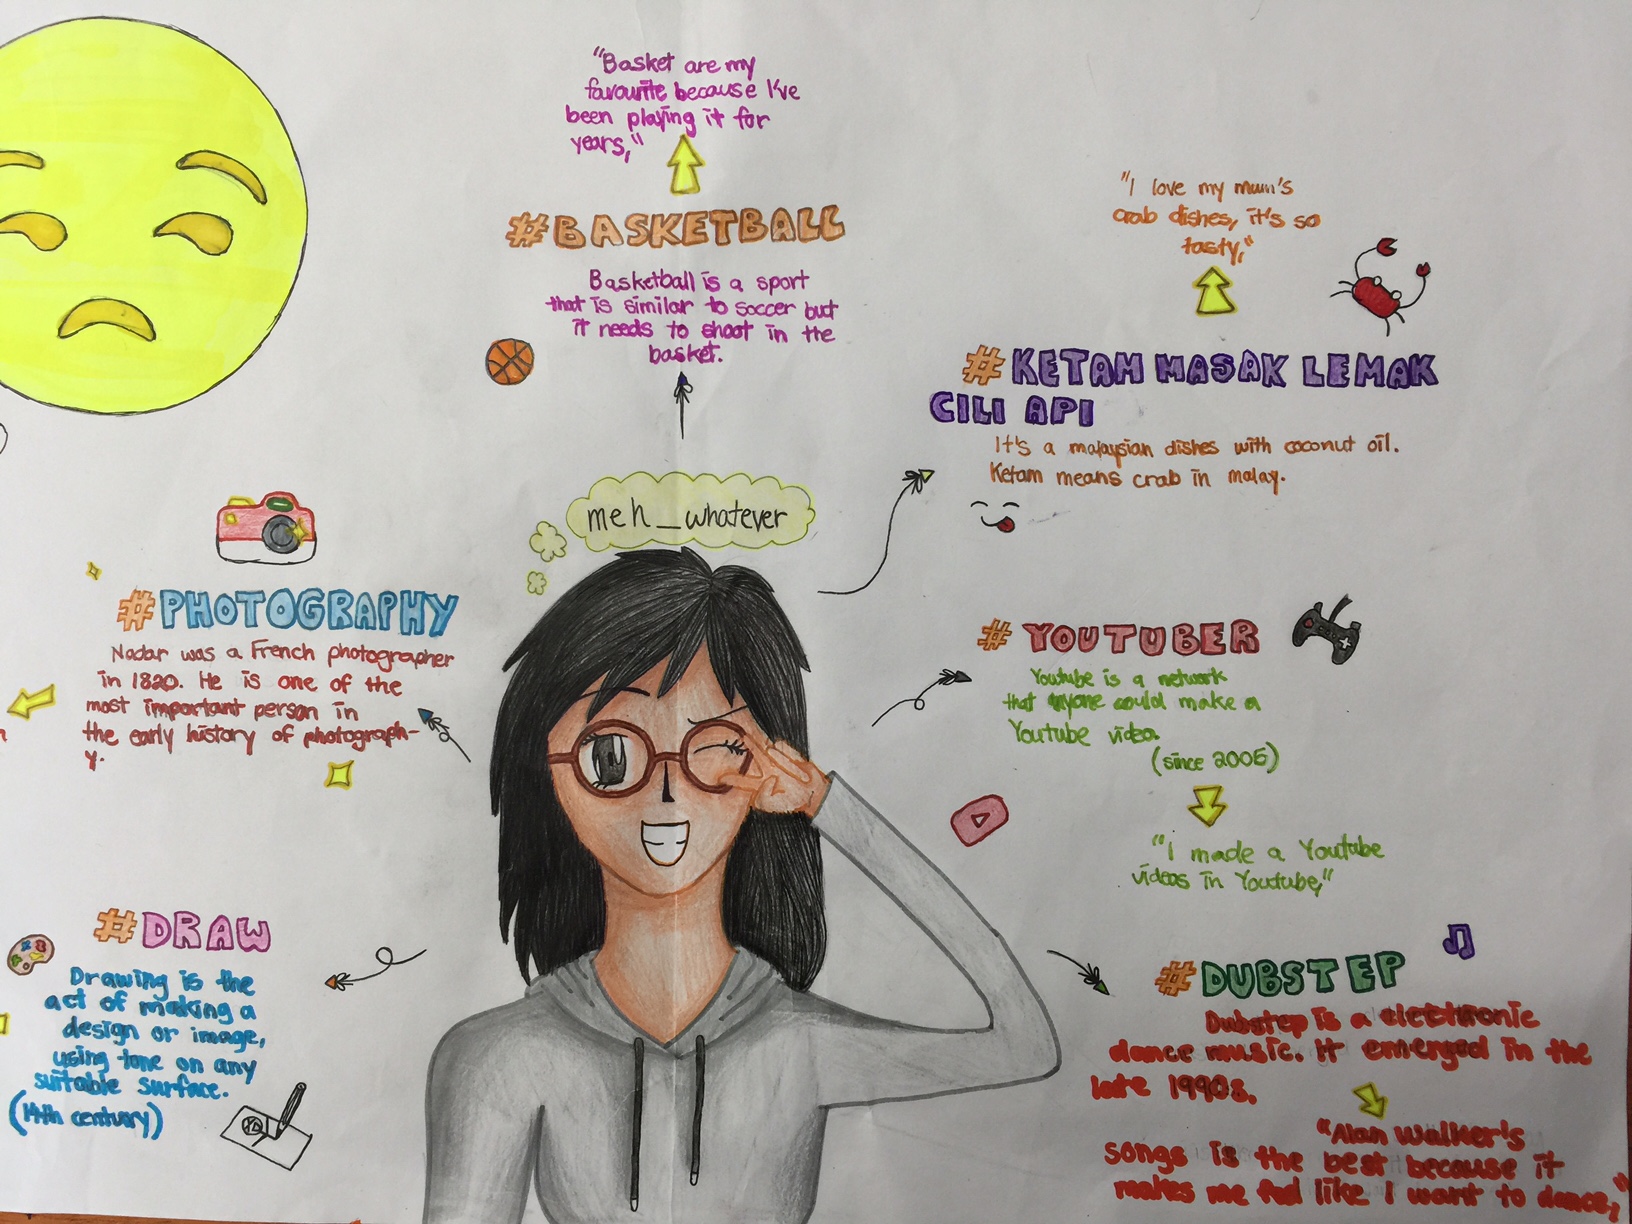 "Basket are my
favourite because I've
been playing it for
years,"
#BASKETBALL
Basketball is a sport
that is similar to soccer but
it needs to shoot in the
basket.
"I love my mum's
crab dishes, it's so
tasty,"
#KETAM MASAK LEMAK
CILI API
It's a malaysian dishes with coconut oil.
Ketam means crab in malay.
meh_whatever
#PHOTOGRAPHY
Nadar was a French photographer
in 1820. He is one of the
most important person in
the early history of photograph-
y.
#YOUTUBER
Youtube is a network
that anyone could make a
Youtube video.
(since 2005)
"I made a Youtube
videos in Youtube,"
#DRAW
Drawing is the
act of making a
design or image,
using tone on any
suitable surface.
(14th century)
#DUBSTEP
Dubstep is a electronic
dance music. It emerged in the
late 1990s.
"Alan Walker's
songs is the best because it
makes me feel like I want to dance,"